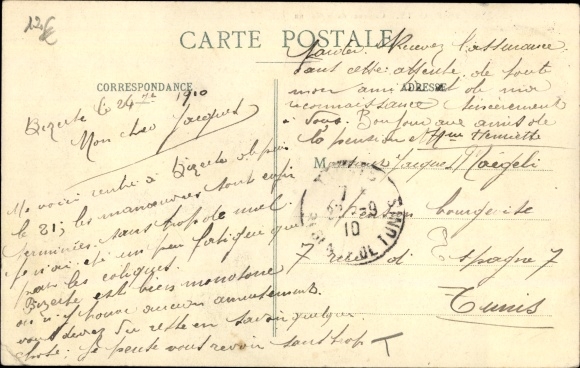 12€
CARTE POSTALE
CORRESPONDANCE
ADRESSE
Bizerte le 24 1910
Mon cher Jacques
Me voici rentré à Bizerte depuis
le 21; les manœuvres sont enfin
terminées sans trop de mal.
Je n'ai été un peu fatigué que
par les coliques.
Bizerte est bien monotone
on n'y trouve aucun amusement.
vous devez du reste en savoir quelque
chose. Je pense vous revoir sans trop
tarder. Recevez l'assurance
dans cette attente, de toute
mon amitié et de ma
reconnaissance sincèrement
à vous. Bonjour aux amis de
la pension et Mme Henriette
Monsieur Jacques Naegeli
pension bourgeoise
7 rue d'Espagne 7
Tunis
10
DE TUNIS